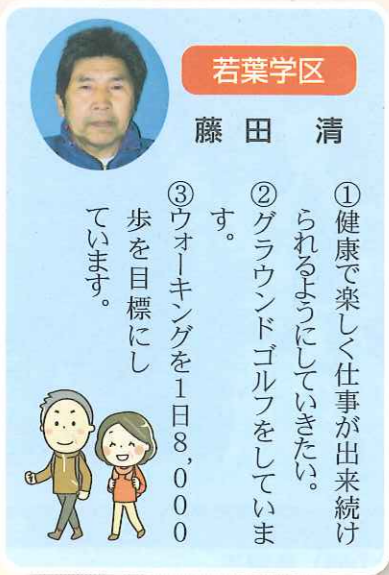 若葉学区
藤田 清
①健康で楽しく仕事が出来続け
られるようにしていきたい。
②グラウンドゴルフをしていま
す。
③ウォーキングを1日8,000
歩を目標にし
ています。